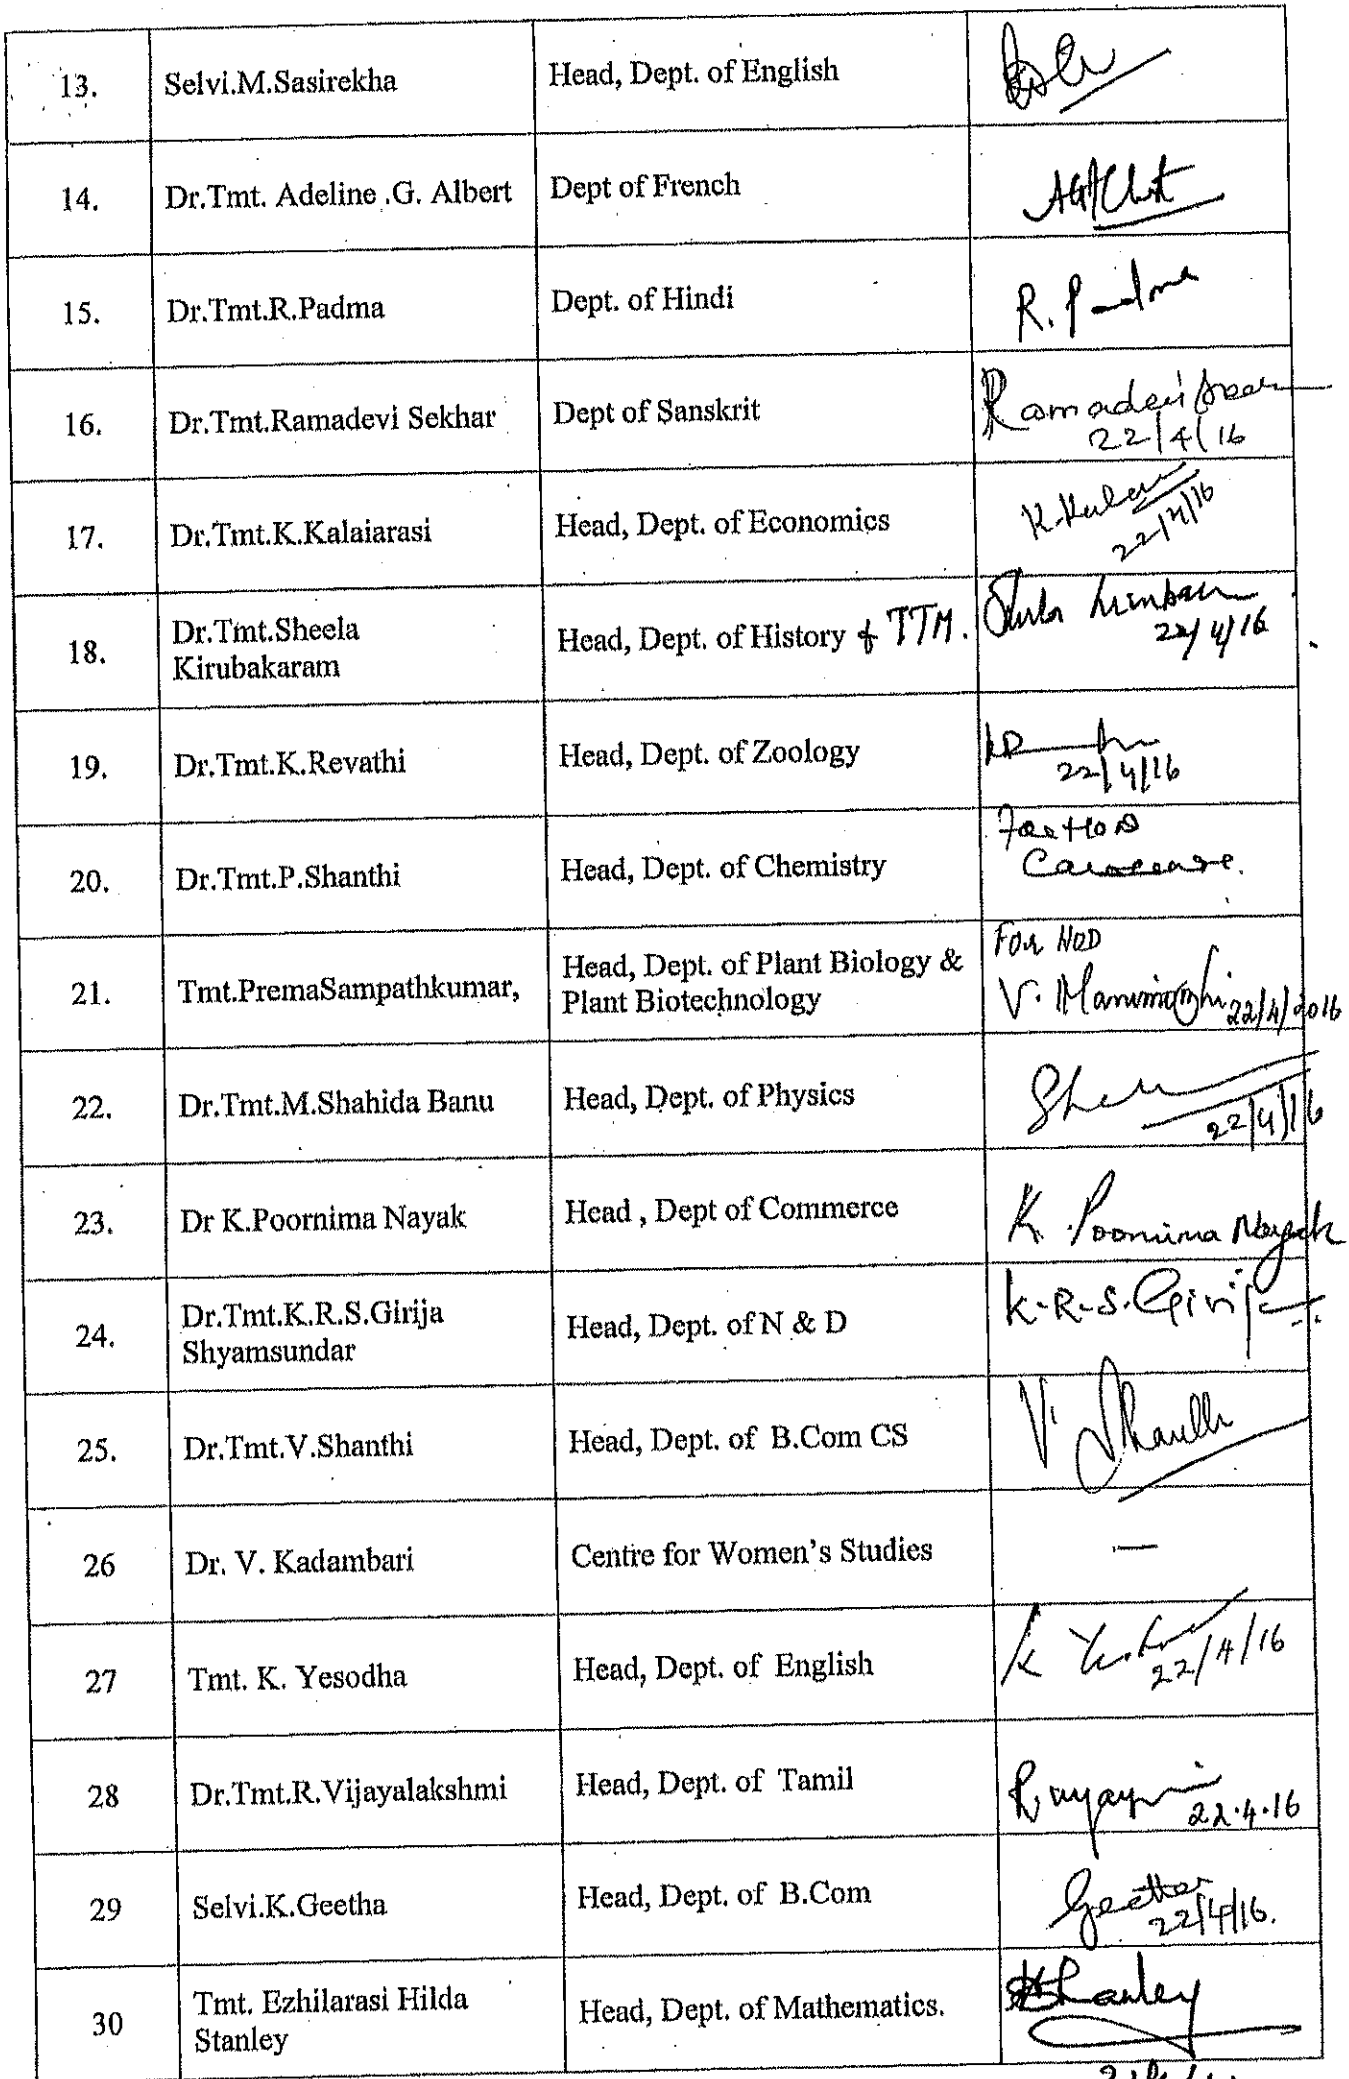 13. Selvi.M.Sasirekha Head, Dept. of English
14. Dr.Tmt. Adeline .G. Albert Dept of French
15. Dr.Tmt.R.Padma Dept. of Hindi R. Padma
16. Dr.Tmt.Ramadevi Sekhar Dept of Sanskrit Ramadevi
22/4/16
17. Dr.Tmt.K.Kalaiarasi Head, Dept. of Economics
22/4/16
18. Dr.Tmt.Sheela
Kirubakaram Head, Dept. of History & TTM.
22/4/16
19. Dr.Tmt.K.Revathi Head, Dept. of Zoology
22/4/16
20. Dr.Tmt.P.Shanthi Head, Dept. of Chemistry For HOD
21. Tmt.PremaSampathkumar, Head, Dept. of Plant Biology &
Plant Biotechnology
For HOD
V. Manimozhi 22/4/2016
22. Dr.Tmt.M.Shahida Banu Head, Dept. of Physics
22/4/16
23. Dr K.Poornima Nayak Head , Dept of Commerce K. Poornima Nayak
24. Dr.Tmt.K.R.S.Girija
Shyamsundar Head, Dept. of N & D K.R.S. Girija
25. Dr.Tmt.V.Shanthi Head, Dept. of B.Com CS V. Shanthi
26 Dr. V. Kadambari Centre for Women's Studies —
27 Tmt. K. Yesodha Head, Dept. of English
22/4/16
28 Dr.Tmt.R.Vijayalakshmi Head, Dept. of Tamil
22.4.16
29 Selvi.K.Geetha Head, Dept. of B.Com Geetha
22/4/16.
30 Tmt. Ezhilarasi Hilda
Stanley Head, Dept. of Mathematics. Stanley